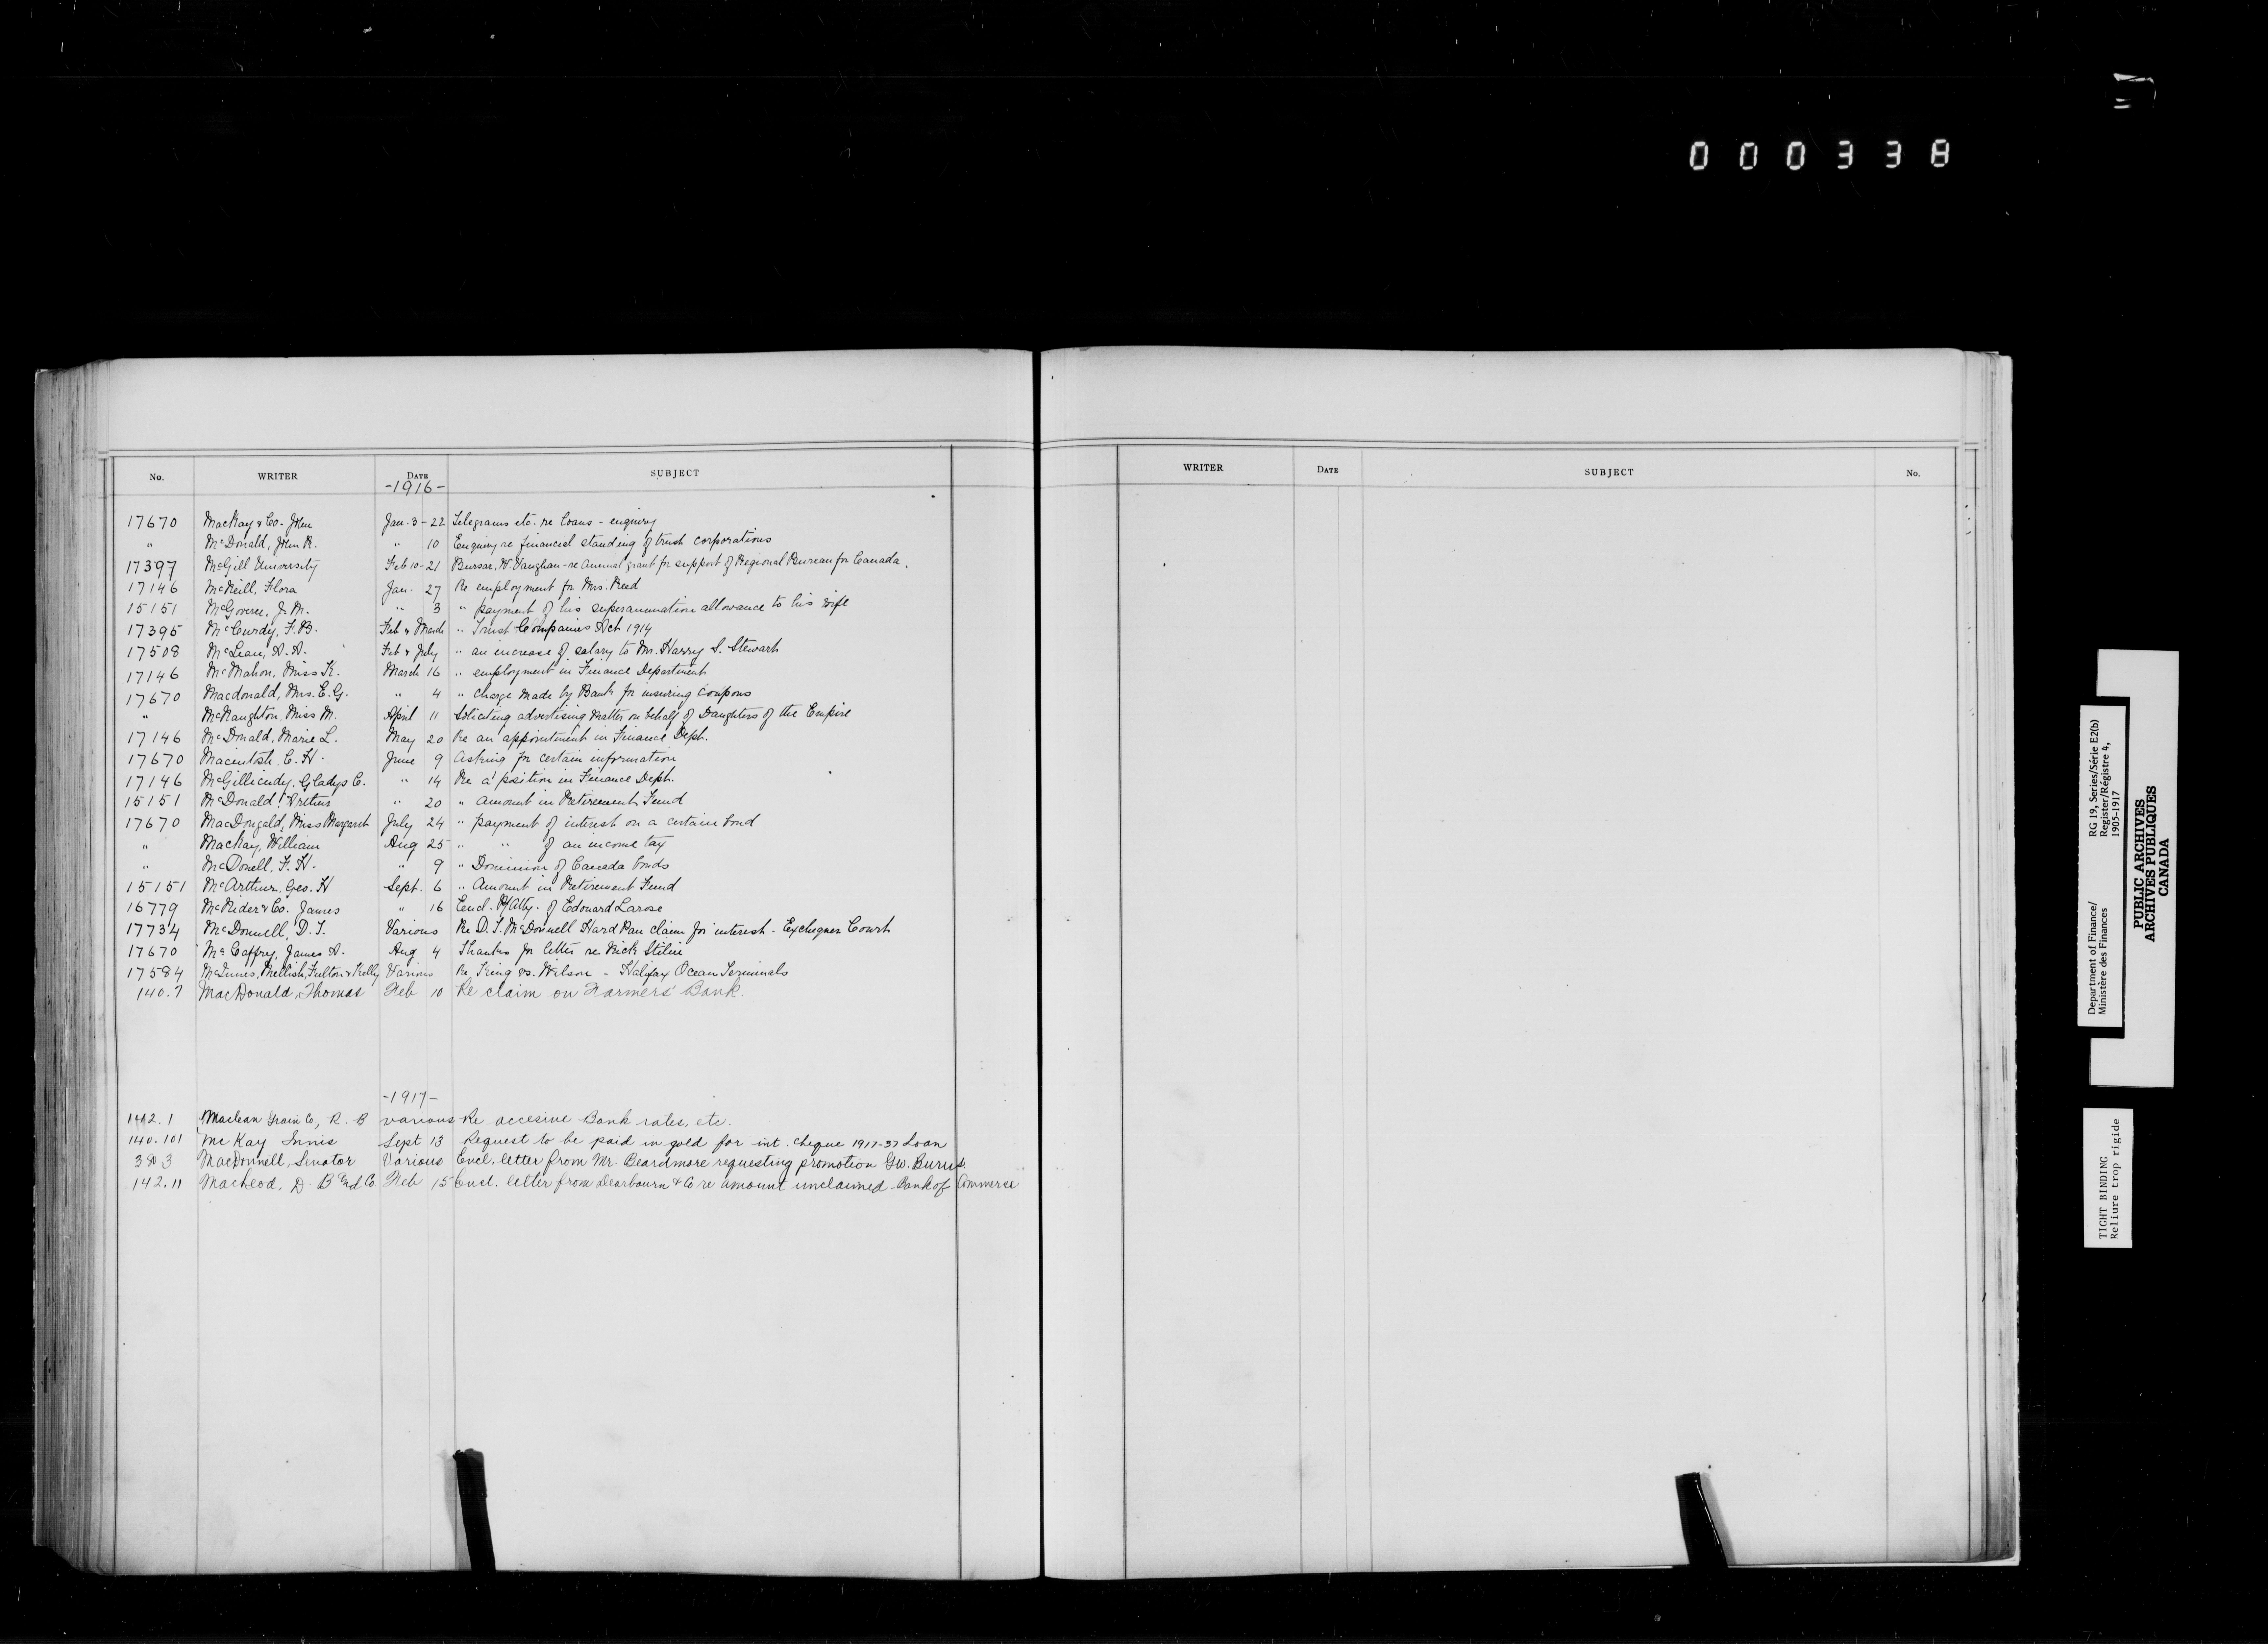 000338
No. WRITER DATE SUBJECT
-1916-
17670 MacKay & Co. John Jan. 3-22 Telegrams etc. re loans - enquiry
" McDonald, John R. " 10 Enquiry re financial standing of trust corporations
17397 McGill University Feb 10-21 Bursar, W. Vaughan - re annual grant for support of Regional Bureau for Canada.
17146 McNeill, Flora Jan. 27 Re employment for Mrs. Reed
15151 McGovern, J. M. " 3 " payment of his superannuation allowance to his wife
17395 McCurdy, F. B. Feb & March " Trust Companies Act 1914
17508 McLean, A. A. Feb & July " an increase of salary to Mr. Harry S. Stewart
17146 McMahon, Miss K. March 16 " employment in Finance Department
17670 Macdonald, Mrs. E. G. " 4 " charge made by Bank for insuring coupons
" McNaughton, Miss M. April 11 Soliciting advertising matter on behalf of Daughters of the Empire
17146 McDonald, Marie L. May 20 Re an appointment in Finance Dept.
17670 Macintosh, C. H. June 9 Asking for certain information
17146 McGillicudy, Gladys C. " 14 Re a position in Finance Dept.
15151 McDonald, Arthur " 20 " amount in Retirement Fund
17670 MacDougald, Miss Margaret July 24 " payment of interest on a certain bond
" MacKay, William Aug 25 " " of an income tax
" McDonell, F. H. " 9 " Dominion of Canada bonds
15151 McArthur, Geo. H Sept. 6 " Amount in Retirement Fund
16779 McNider & Co. James " 16 Encl. P/Atty. of Edouard Larose
17734 McDonnell, D. T. Various Re D. T. McDonnell Hard Pan claim for interest - Exchequer Court
17670 McCaffry, James A. Aug 4 Thanks for letter re Nick
17584 McInnes, Mellish, Fulton & Kelly Various Re King vs. Wilson - Halifax Ocean Terminals
140.7 MacDonald, Thomas Feb 10 Re claim on Farmers' Bank.
-1917-
142.1 Maclean Grain Co, R. B various Re Bank rates, etc.
140.101 McKay Innis Sept 13 Request to be paid in gold for int. cheque 1917-37 Loan
MacDonnell, Senator Various Encl. letter from Mr. Beardmore requesting promotion G.W. Burns
142.11 MacLeod, D. B Co. Feb 15 Encl. letter from Dearbourn & Co re amount unclaimed - Bank of Commerce
WRITER DATE SUBJECT No.
Department of Finance/
Ministère des Finances
RG 19, Series/Série E2(b)
Register/Régistre 4,
1905-1917
PUBLIC ARCHIVES
ARCHIVES PUBLIQUES
CANADA
TIGHT BINDING
Reliure trop rigide